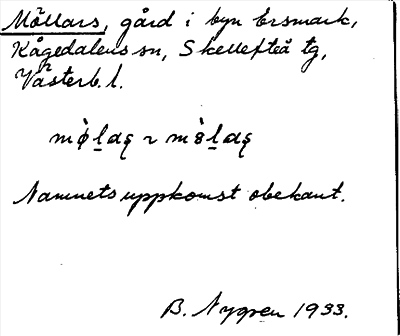 Möllars, gård i byn Ersmark,
Kågedalens sn, Skellefteå tg,
Västerb. l.
Namnets uppkomst obekant.
B. Nygren 1933.